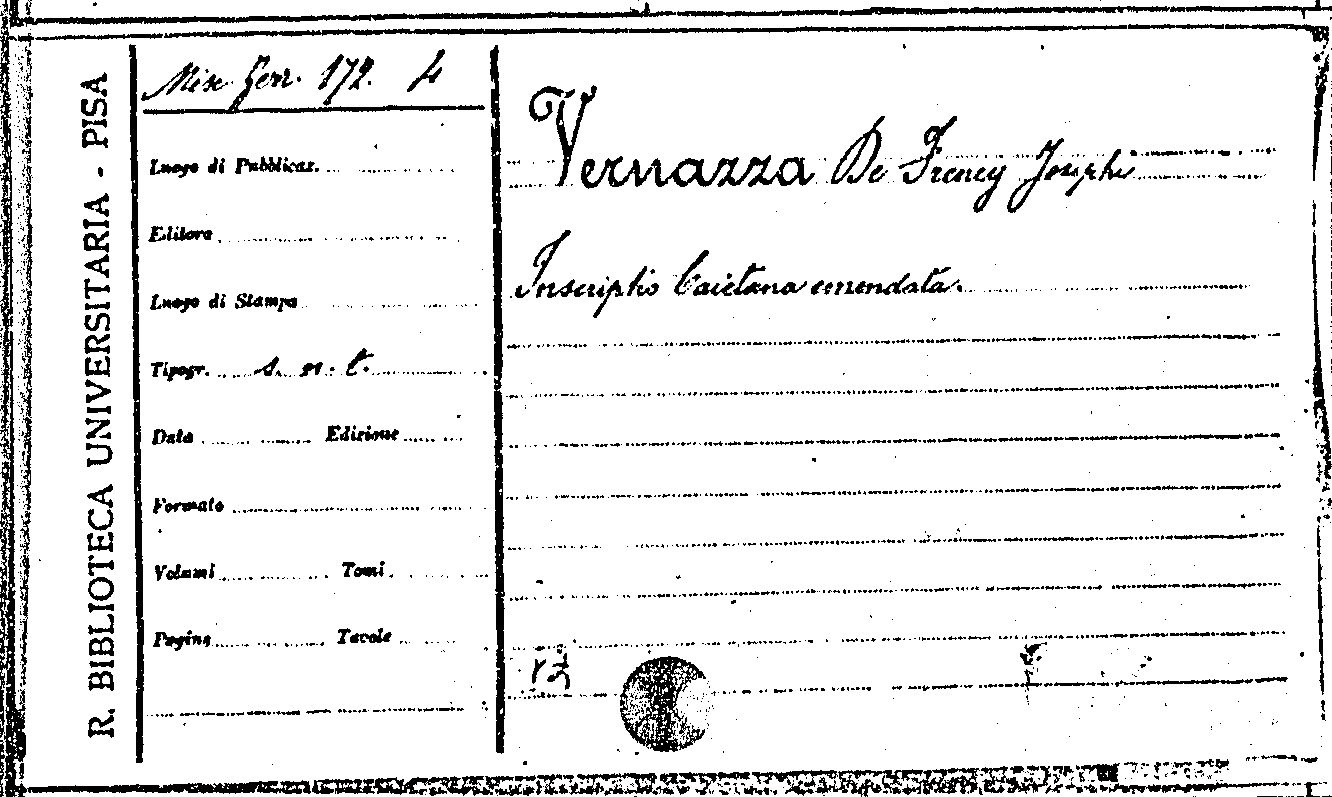 R. BIBLIOTECA UNIVERSITARIA - PISA
Misc. Ferr. 172. 4
Luogo di Pubblicaz.
Editore
Luogo di Stampa
Tipogr. s. n. t.
Data Edizione
Formato
Volumi Tomi
Pagine Tavole
Vernazza De Freney Josephi
Inscriptio Caietana emendata.